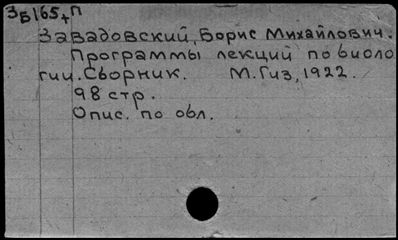 ЗБ165,+П
Завадовский, Борис Михайлович.
Программы лекций по биоло
гии. Сборник. М. Гиз, 1922.
98 стр.
Опис. по обл.